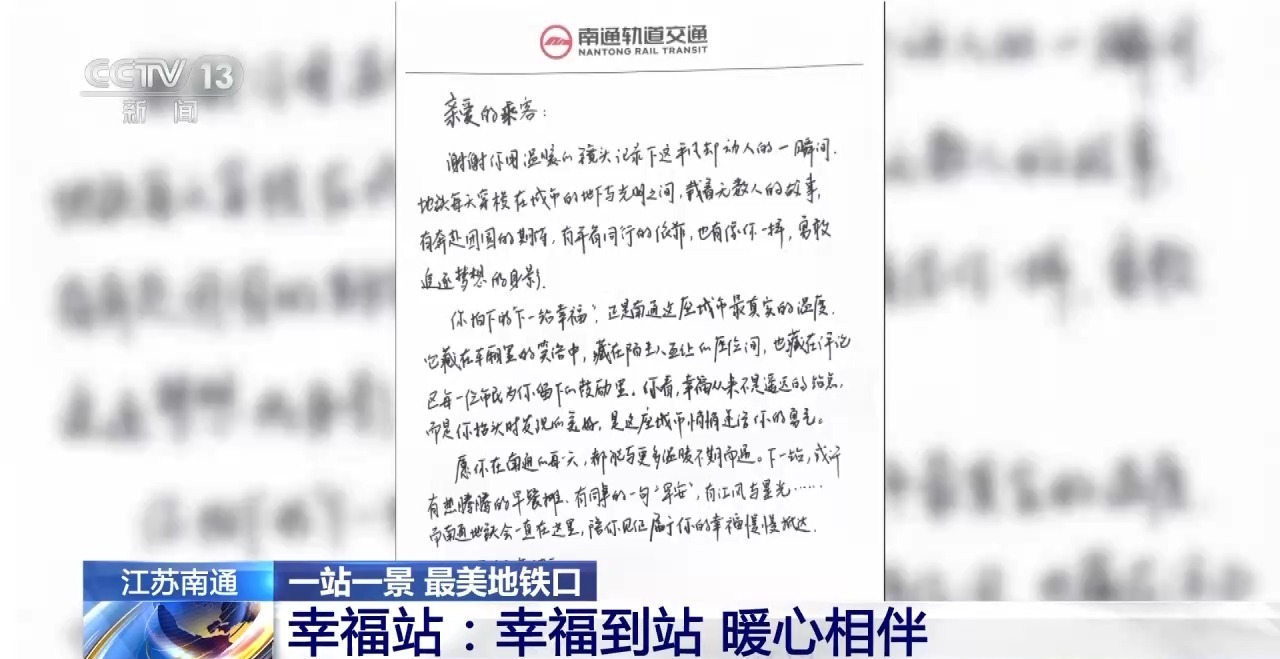 CCTV 13
新闻
南通轨道交通
NANTONG RAIL TRANSIT
亲爱的乘客：
谢谢你用温暖的镜头记录下这平凡却动人的一瞬间.
地铁每天穿梭在城市的地下与光明之间，载着无数人的故事，
有奔赴团圆的期盼，有并肩同行的依靠，也有像你一样，勇敢
追逐梦想的身影.
你拍下的下一站幸福，正是南通这座城市最真实的温度.
它藏在车厢里的笑语中，藏在陌生人互让的座位间，也藏在评论
区每一位市民为你留下的鼓励里。你看，幸福从来不是遥远的站点，
而是你抬头时发现的美好，是这座城市悄悄递给你的勇气。
愿你在南通的每一天，都能与更多温暖不期而遇。下一站，或许
有热腾腾的早餐摊、有同事的一句“早安”，有江风与星光……
而南通地铁会一直在这里，陪你见证属于你的幸福慢慢抵达.
江苏南通
一站一景 最美地铁口
幸福站：幸福到站 暖心相伴